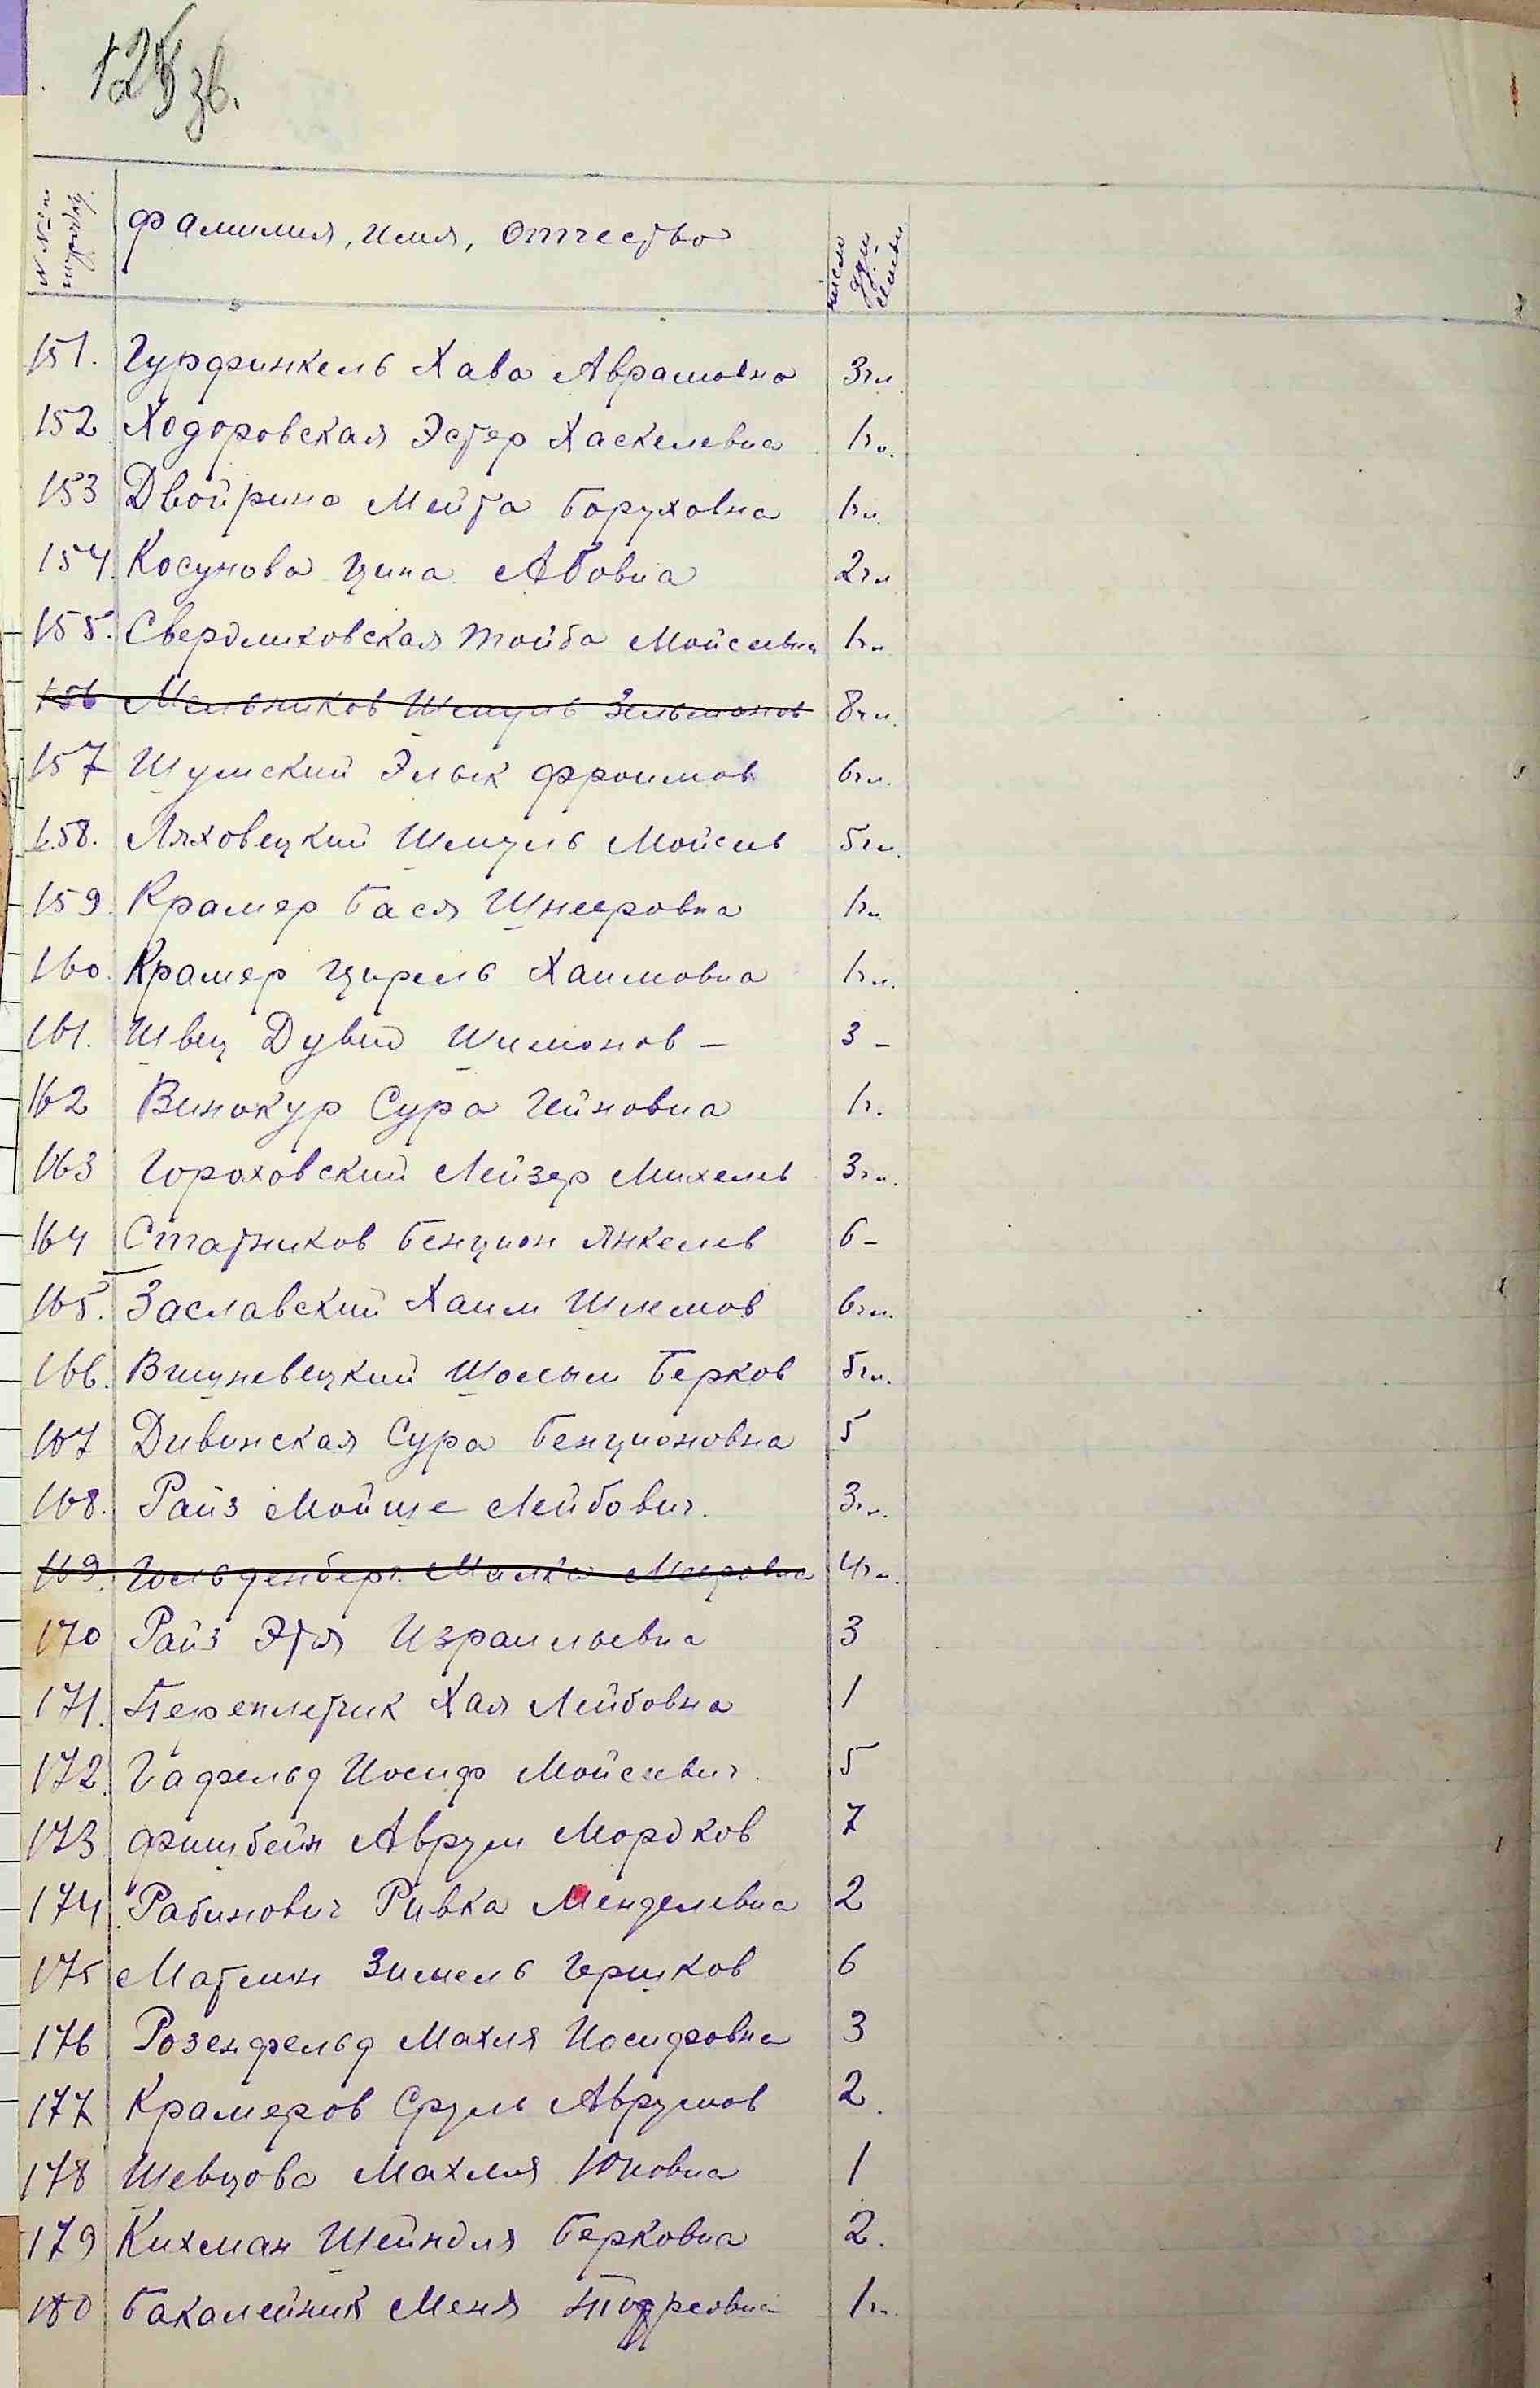 125 зв.
№№ по порядку
Фамилия, имя, отчество
число душ семьи
151. Гурфинкель Хава Аврамовна 3 чл.
152 Ходоровская Эстер Хаскелевна 1 ч.
153 Двойрина Мейта Боруховна 1 чл.
154. Косунова Ципа Абовна 2 чл
155. Свердликовская Тойба Мойсеевна 1 чл.
156 Мельников Шмуль Зельманов 8 чл.
157 Шумский Элык Фроимов 6 чл.
158. Ляховецкий Шмуль Мойсеев 5 чл.
159 Крамер Бася Шнееровна 1 чл.
160. Крамер Цирель Хаимовна 1 чл.
161. Швец Дувид Шимонов – 3 –
162 Винокур Сура Гейновна 1 ч.
163 Гороховский Лейзер Михелев 3 чл.
164 Статников Бенцион Янкелев 6 –
165. Заславский Хаим Шлемов 6 чл.
166. Вишневецкий Шолым Берков 5 чл.
167 Дивинская Сура Бенционовна 5
168. Райз Мойше Лейбович. 3 ч.
169. Гольденберг Малка Мееровна 4 чл.
170 Райз Этя Израильевна 3
171. Переплетчик Хая Лейбовна 1
172. Гафельд Иосиф Мойсеевич. 5
173 Фишбейн Аврум Мордков 7
174. Рабинович Ривка Менделевна 2
175 Матлин Зимель Гершков 6
176 Розенфельд Махля Иосифовна 3
177 Крамеров Сруль Аврумов 2.
178 Шевцова Махля Юновна 1
179 Кихман Шейндля Берковна 2.
180 Бакалейник Меня 1 ч.